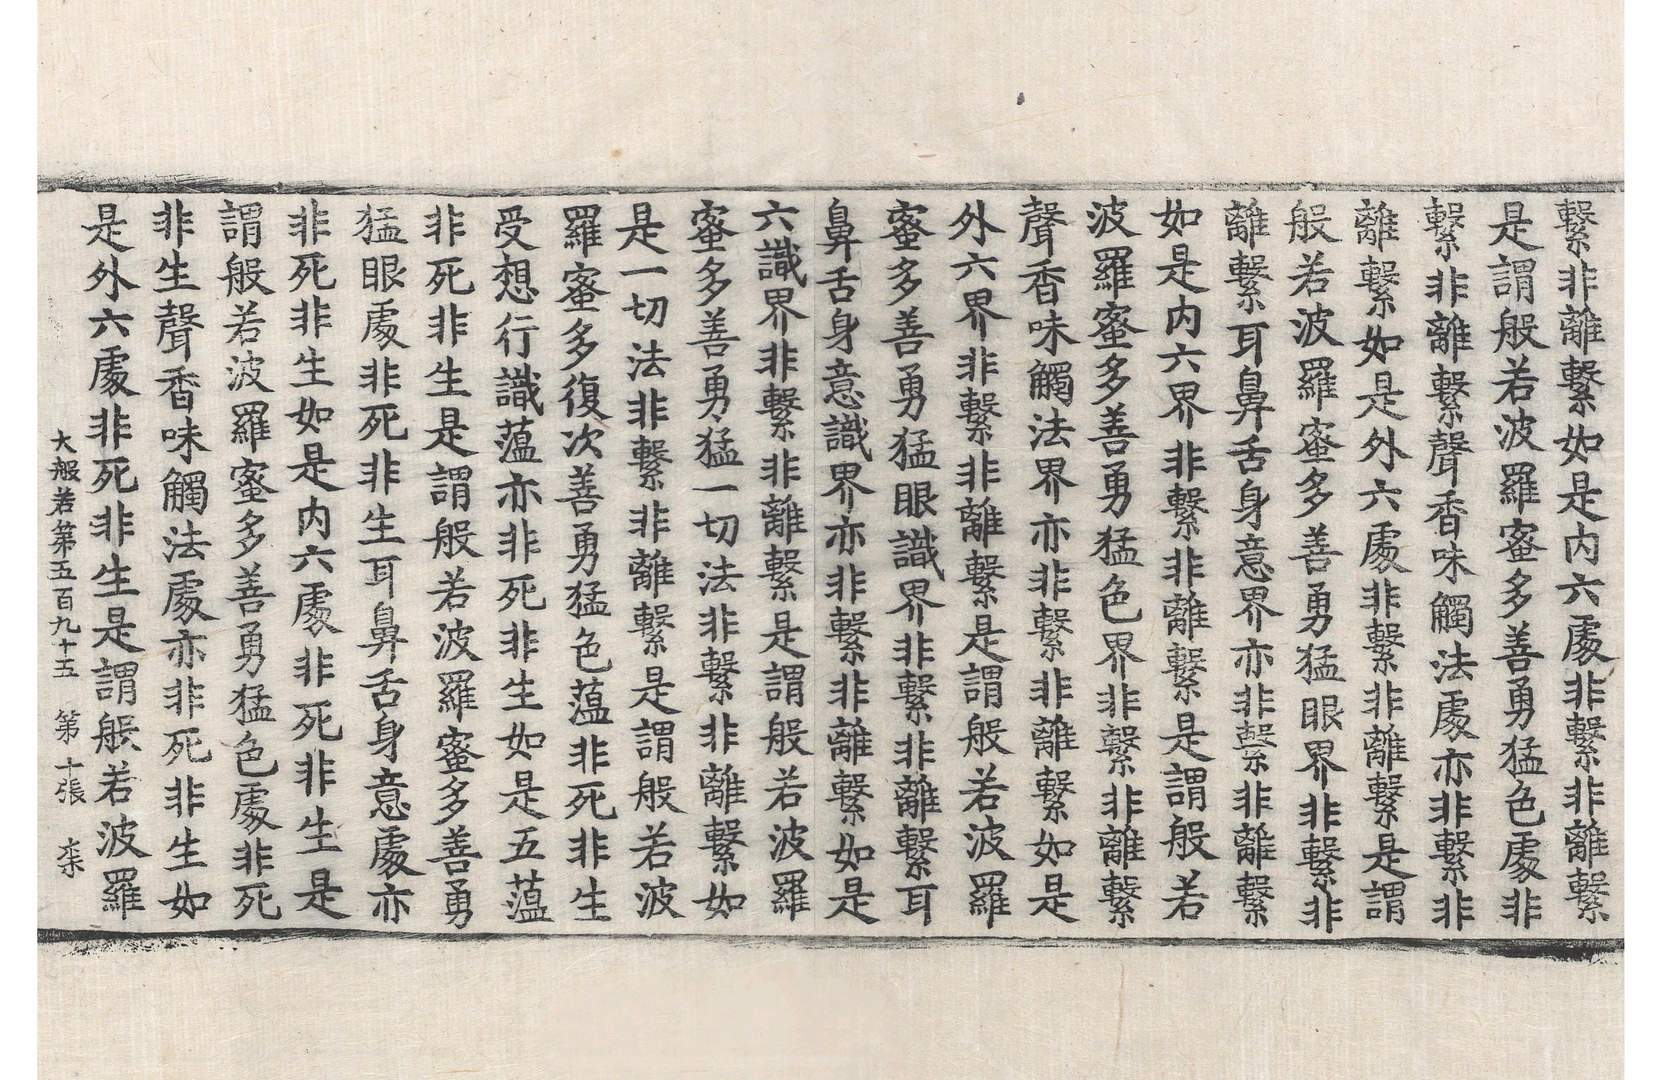 繫非離繫如是内六處非繫非離繫
是謂般若波羅蜜多善勇猛色處非
繫非離繫聲香味觸法處亦非繫非
離繫如是外六處非繫非離繫是謂
般若波羅蜜多善勇猛眼界非繫非
離繫耳鼻舌身意界亦非繫非離繫
如是内六界非繫非離繫是謂般若
波羅蜜多善勇猛色界非繫非離繫
聲香味觸法界亦非繫非離繫如是
外六界非繫非離繫是謂般若波羅
蜜多善勇猛眼識界非繫非離繫耳
鼻舌身意識界亦非繫非離繫如是
六識界非繫非離繫是謂般若波羅
蜜多善勇猛一切法非繫非離繫如
是一切法非繫非離繫是謂般若波
羅蜜多復次善勇猛色蘊非死非生
受想行識蘊亦非死非生如是五蘊
非死非生是謂般若波羅蜜多善勇
猛眼處非死非生耳鼻舌身意處亦
非死非生如是内六處非死非生是
謂般若波羅蜜多善勇猛色處非死
非生聲香味觸法處亦非死非生如
是外六處非死非生是謂般若波羅
大般若第五百九十五 第十張 柰